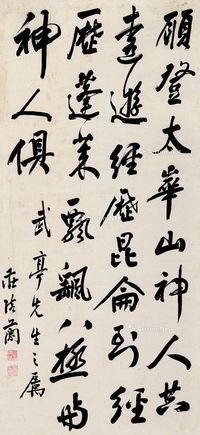 願登太華山神人共
遠遊經歷昆侖到經
歷蓬萊飄飖八極与
神人俱
武亭先生之屬
莊陔蘭